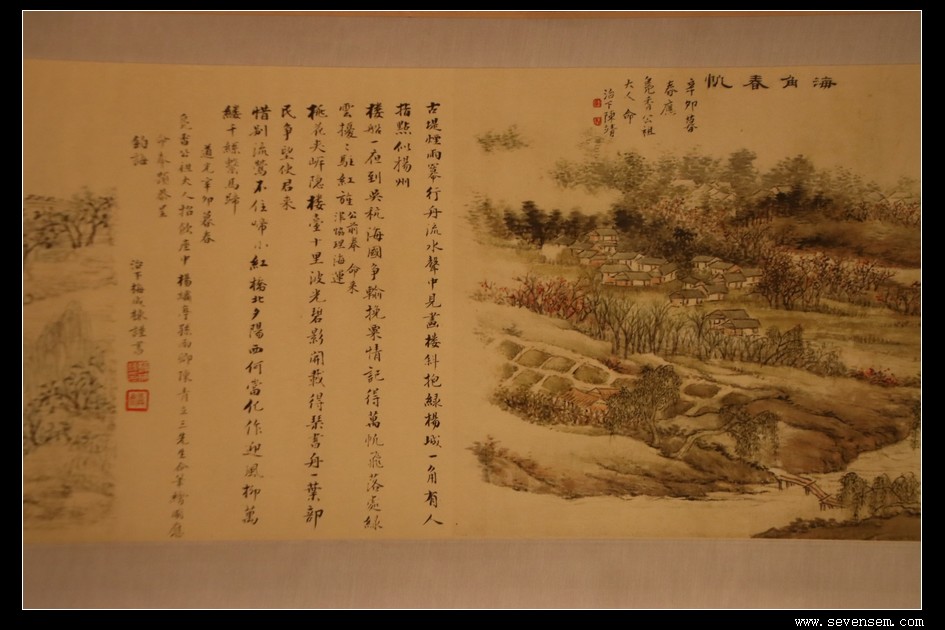 海角春帆
辛卯暮
春應
公祖
大人命
治下陳靖
古堤煙雨蹇行舟流水聲中見畫樓斜抱綠楊城一角有人
指點似揚州
樓船一夜到吳秔海國爭輸挽粟情記得萬帆飛落處綠
雲擾擾駐紅旌公前奉命來津協理海運
桃花夾岸隱樓臺十里波光碧影開載得琴書舟一葉部
民爭望使君來
惜別流鶯不住啼小紅橋北夕陽西何當化作迎風柳萬
縷千絲繫馬蹄
道光辛卯暮春
公祖大人招飲座中楊
陳青立三先生合筆繪圖應
命奉題恭呈
鈞誨
治下梅成棟謹書
www.sevensem.com